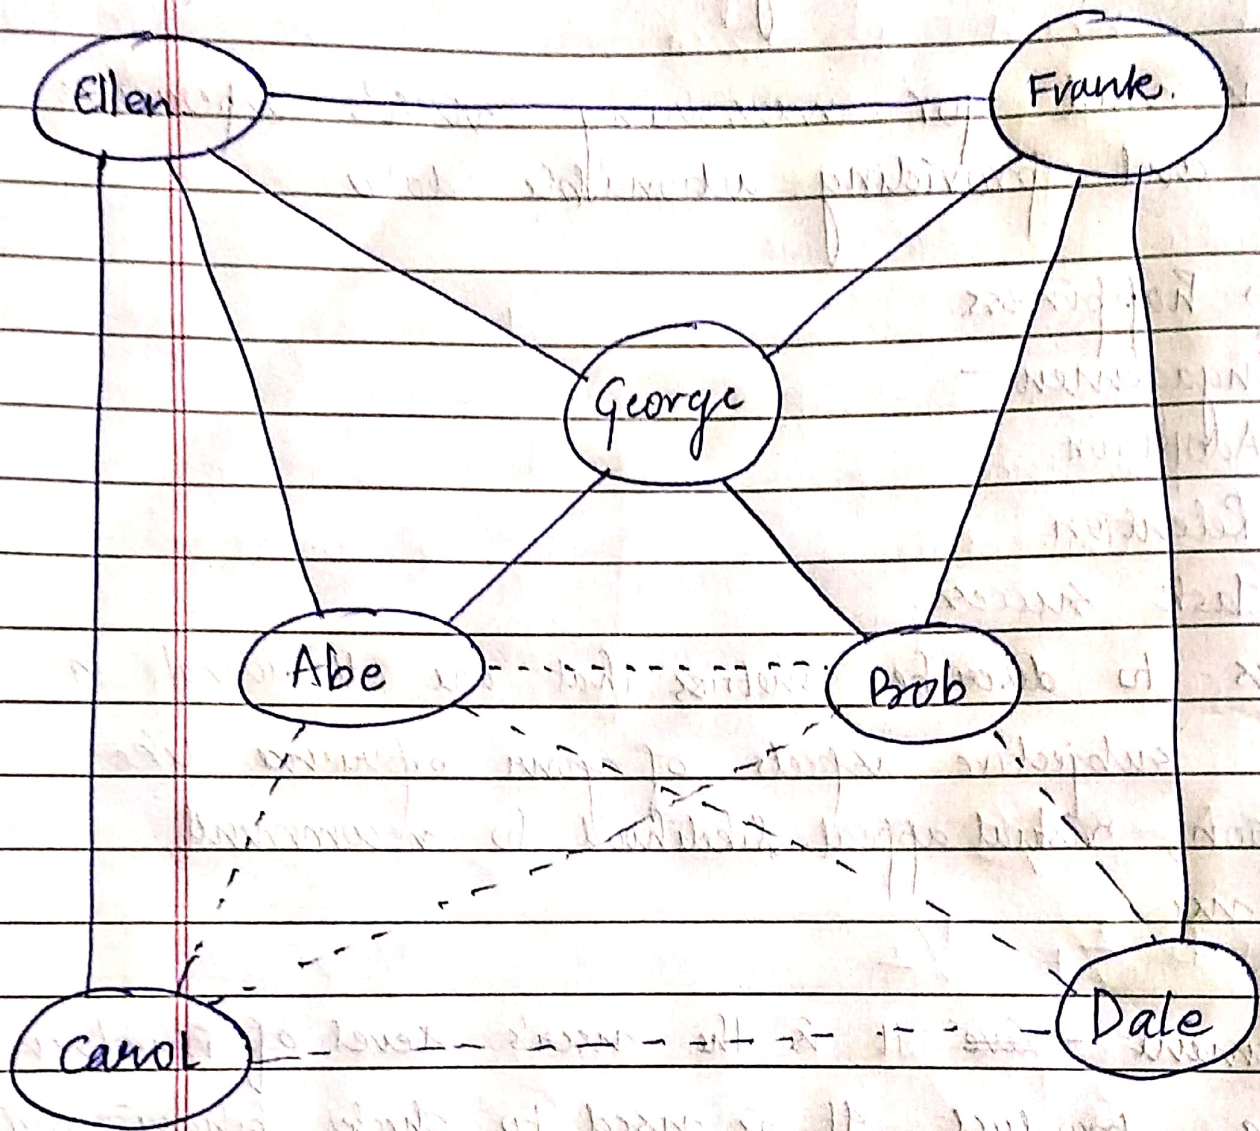 Ellen
Frank.
George
Abe
Bob
Carol
Dale